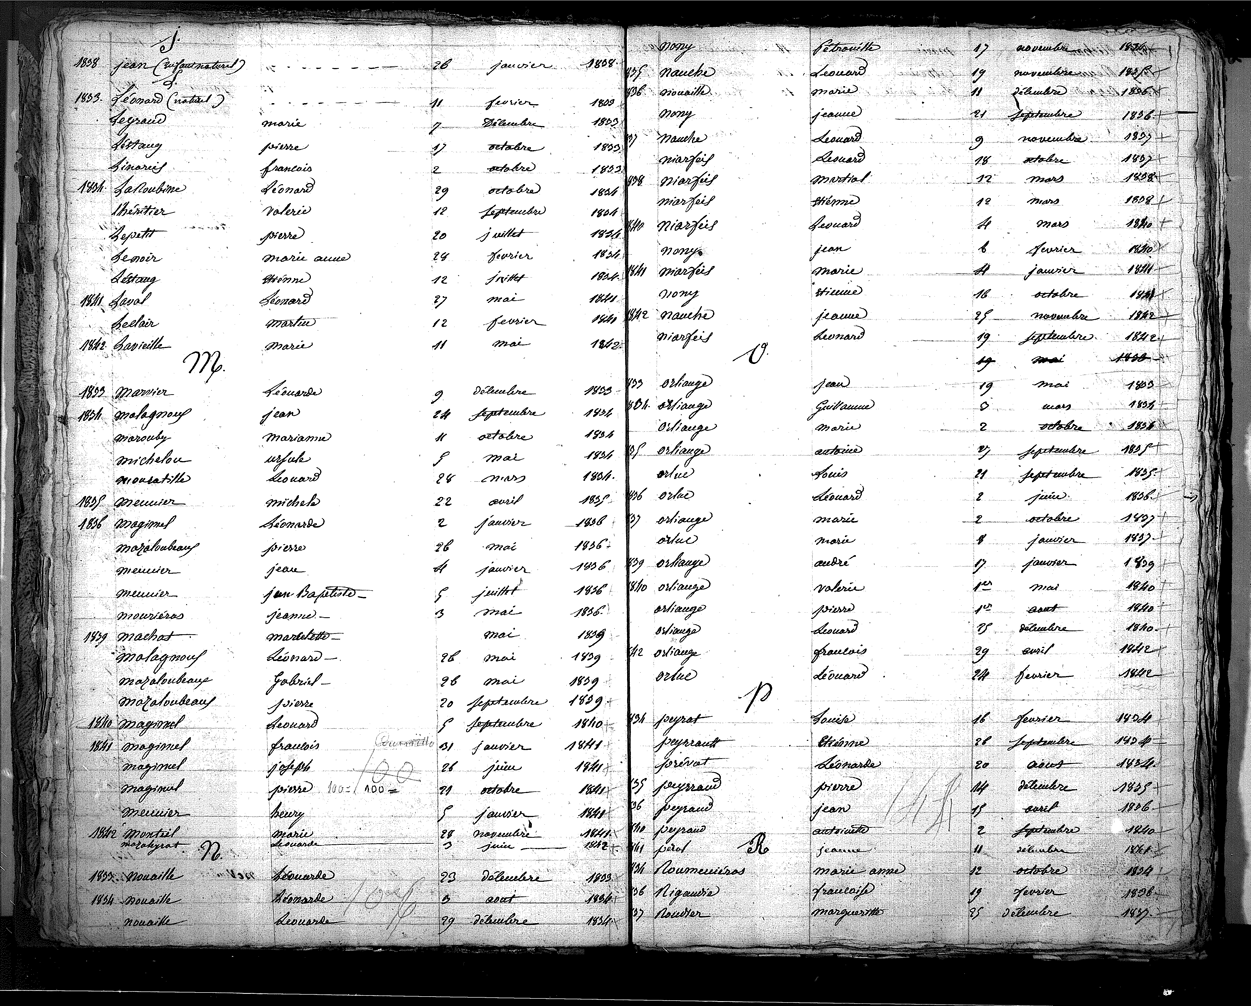 J
1838 jean (enfant naturel) 26 janvier 1838
L
1833 Léonard (naturel) 11 fevrier 1833
Legraud marie 7 Décembre 1833
Lestang pierre 17 octobre 1833
Linareis francois 2 octobre 1833
1834 Laroubine Léonard 29 octobre 1834
Lhéritier valerie 12 septembre 1834
Lepetit pierre 20 juillet 1834
Lenoir marie anne 28 fevrier 1834
Lestang etiénne 12 juillet 1834
1841 Laval Léonard 27 mai 1841
Leclair martin 12 fevrier 1841
1842 Lavieille marie 11 mai 1842
M.
1833 marvier Léonarde 9 décembre 1833
1834 malagnoux jean 24 septembre 1834
marouby marianne 11 octobre 1834
michelou ursule 5 mai 1834
moussatille Leonard 28 mars 1834
1835 meunier michele 22 avril 1835
1836 magimel Léonarde 2 janvier 1836
mazaloubeaux pierre 26 mai 1836
meunier jean 4 janvier 1836
meunier jean Baptiste 5 juillet 1836
mouriéras jeanne 3 mai 1836
1839 machat marcelette mai 1839
malagnoux Léonard 26 mai 1839
mazaloubeaux Gabriel 26 mai 1839
mazaloubeaux pierre 20 septembre 1839
1840 magimel Leonard 5 septembre 1840
1841 magimel francois 31 janvier 1841
magimel joseph 26 juin 1841
100
magimel pierre 100= 100= 21 octobre 1841
meunier henry 5 janvier 1841
1842 Monteil marie 28 novembre 1841
Leonarde 3 juin 1842
N.
1833 nouaille Léonarde 23 décembre 1833
1834 nouaille Léonarde 3 aout 1834
nouaille Leonarde 29 décembre 1834
nony Pétronille 17 novembre 1834
835 nauche Leonard 19 novembre 1835
836 nouaille marie 11 décembre 1836
nony jeanne 21 septembre 1836
37 nauche Leonard 9 novembre 1837
niarfeis Leonard 18 octobre 1837
838 niarfeis martial 12 mars 1838
niarfeis etiénne 12 mars 1838
840 niarfeis Leonard 4 mars 1840
nony jean 6 fevrier 1840
1841 niarfeis marie 4 janvier 1841
nony etienne 16 octobre 1841
1842 nauche jeanne 25 novembre 1842
niarfeis Leonard 19 septembre 1842
O.
19 mai 1833
833 orliange jean 19 mai 1833
1834 orliange Guillaume 3 mars 1834
orliange marie 2 octobre 1834
835 orliange antoine 27 septembre 1835
orluc Louis 21 septembre 1835
836 orluc Léonard 2 juin 1836
837 orliange marie 2 octobre 1837
orluc marie 8 janvier 1837
839 orliange andré 17 janvier 1839
1840 orliange valerie 1er mai 1840
orliange pierre 1er aout 1840
orliange Leonard 25 décembre 1840
842 orliange francois 29 avril 1842
orluc Léonard 24 fevrier 1842
P
834 peyrat Louise 16 fevrier 1834
peyrault Etiénne 28 septembre 1834
prévot Léonarde 20 aout 1834
835 peyraud pierre 14 décembre 1835
836 peyraud jean 15 avril 1836
840 peyraud antoinette 2 septembre 1840
841 perol jeanne 11 décembre 1841
R
834 Roumeniéras marie anne 12 octobre 1834
836 Rigaudie francoise 19 fevrier 1836
837 Roudier marguerite 25 décembre 1837